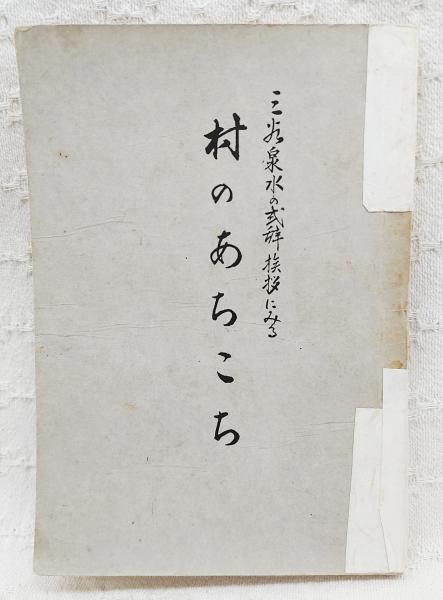 三谷泉水の式辞挨拶にみる
村のあちこち